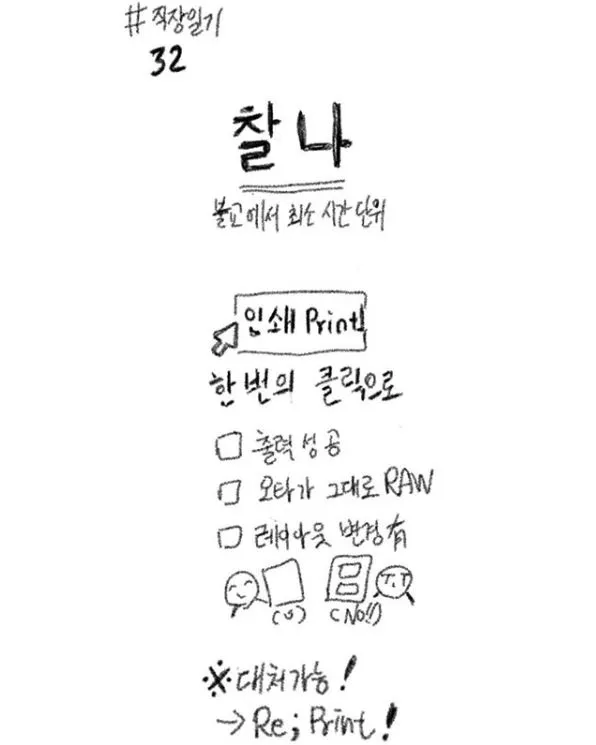 #직장일기
32
찰나
불교에서 최소 시간 단위
인쇄 Print
한 번의 클릭으로
출력 성공
오타가 그대로 RAW
레이아웃 변경 有
T.T
(No!!)
※대처가능!
→Re; Print!